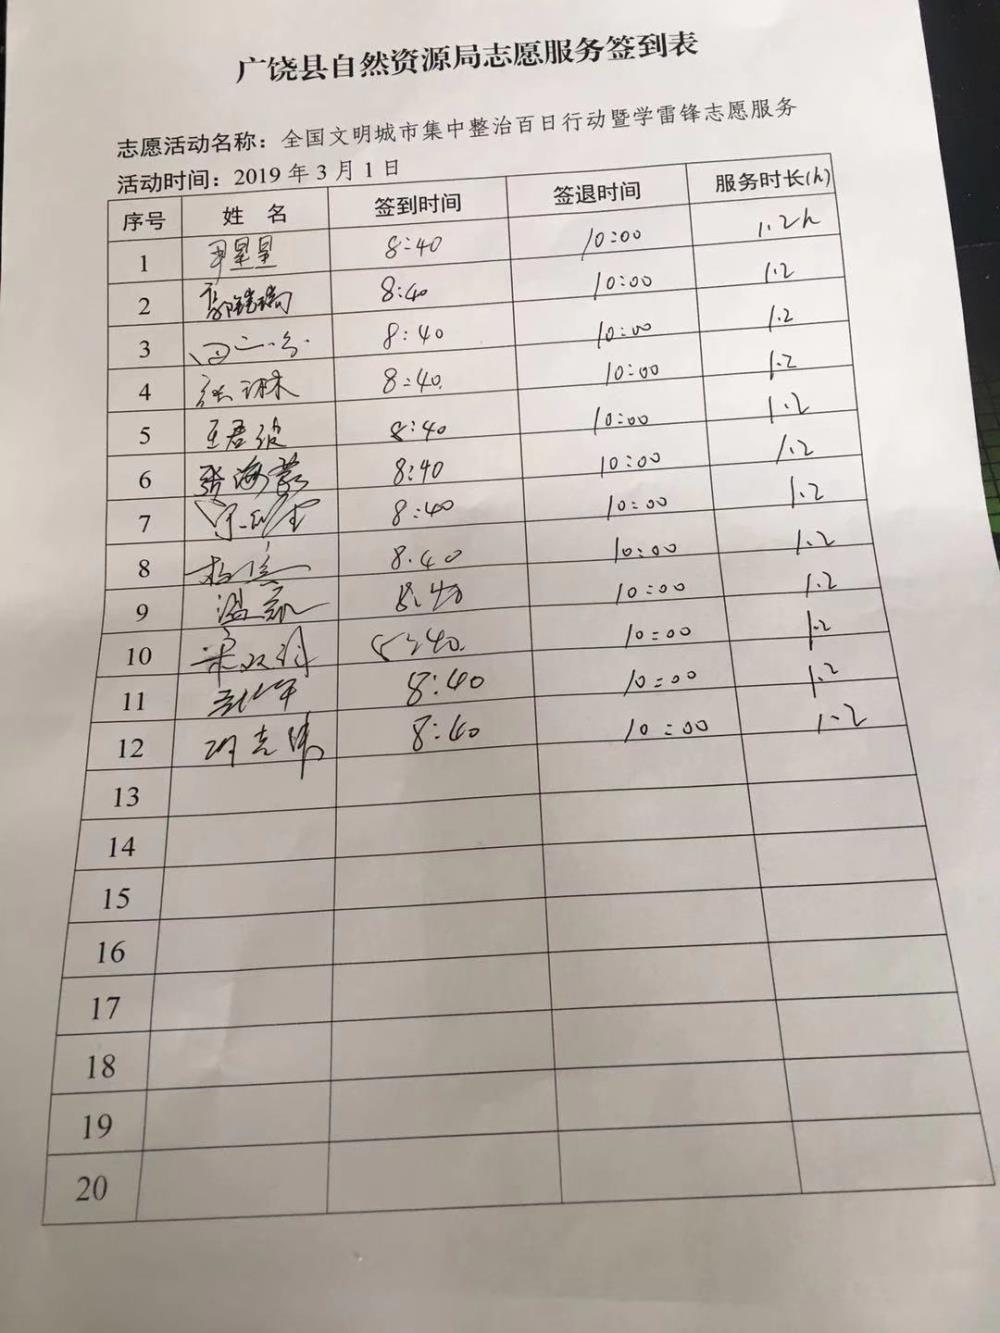 广饶县自然资源局志愿服务签到表
志愿活动名称：全国文明城市集中整治百日行动暨学雷锋志愿服务
活动时间：2019 年 3 月 1 日
序号 姓 名 签到时间 签退时间 服务时长(h)
1 8:40 10:00 1.2h
2 8:40 10:00 1.2
3 8:40 10:00 1.2
4 张琳 8:40 10:00 1.2
5 王君 8:40 10:00 1.2
6 张海蒙 8:40 10:00 1.2
7 8:40 10:00 1.2
8 8:40 10:00 1.2
9 温凯 8:40 10:00 1.2
10 :40 10:00 1.2
11 8:40 10:00 1.2
12 克伟 8:40 10:00 1.2
13
14
15
16
17
18
19
20